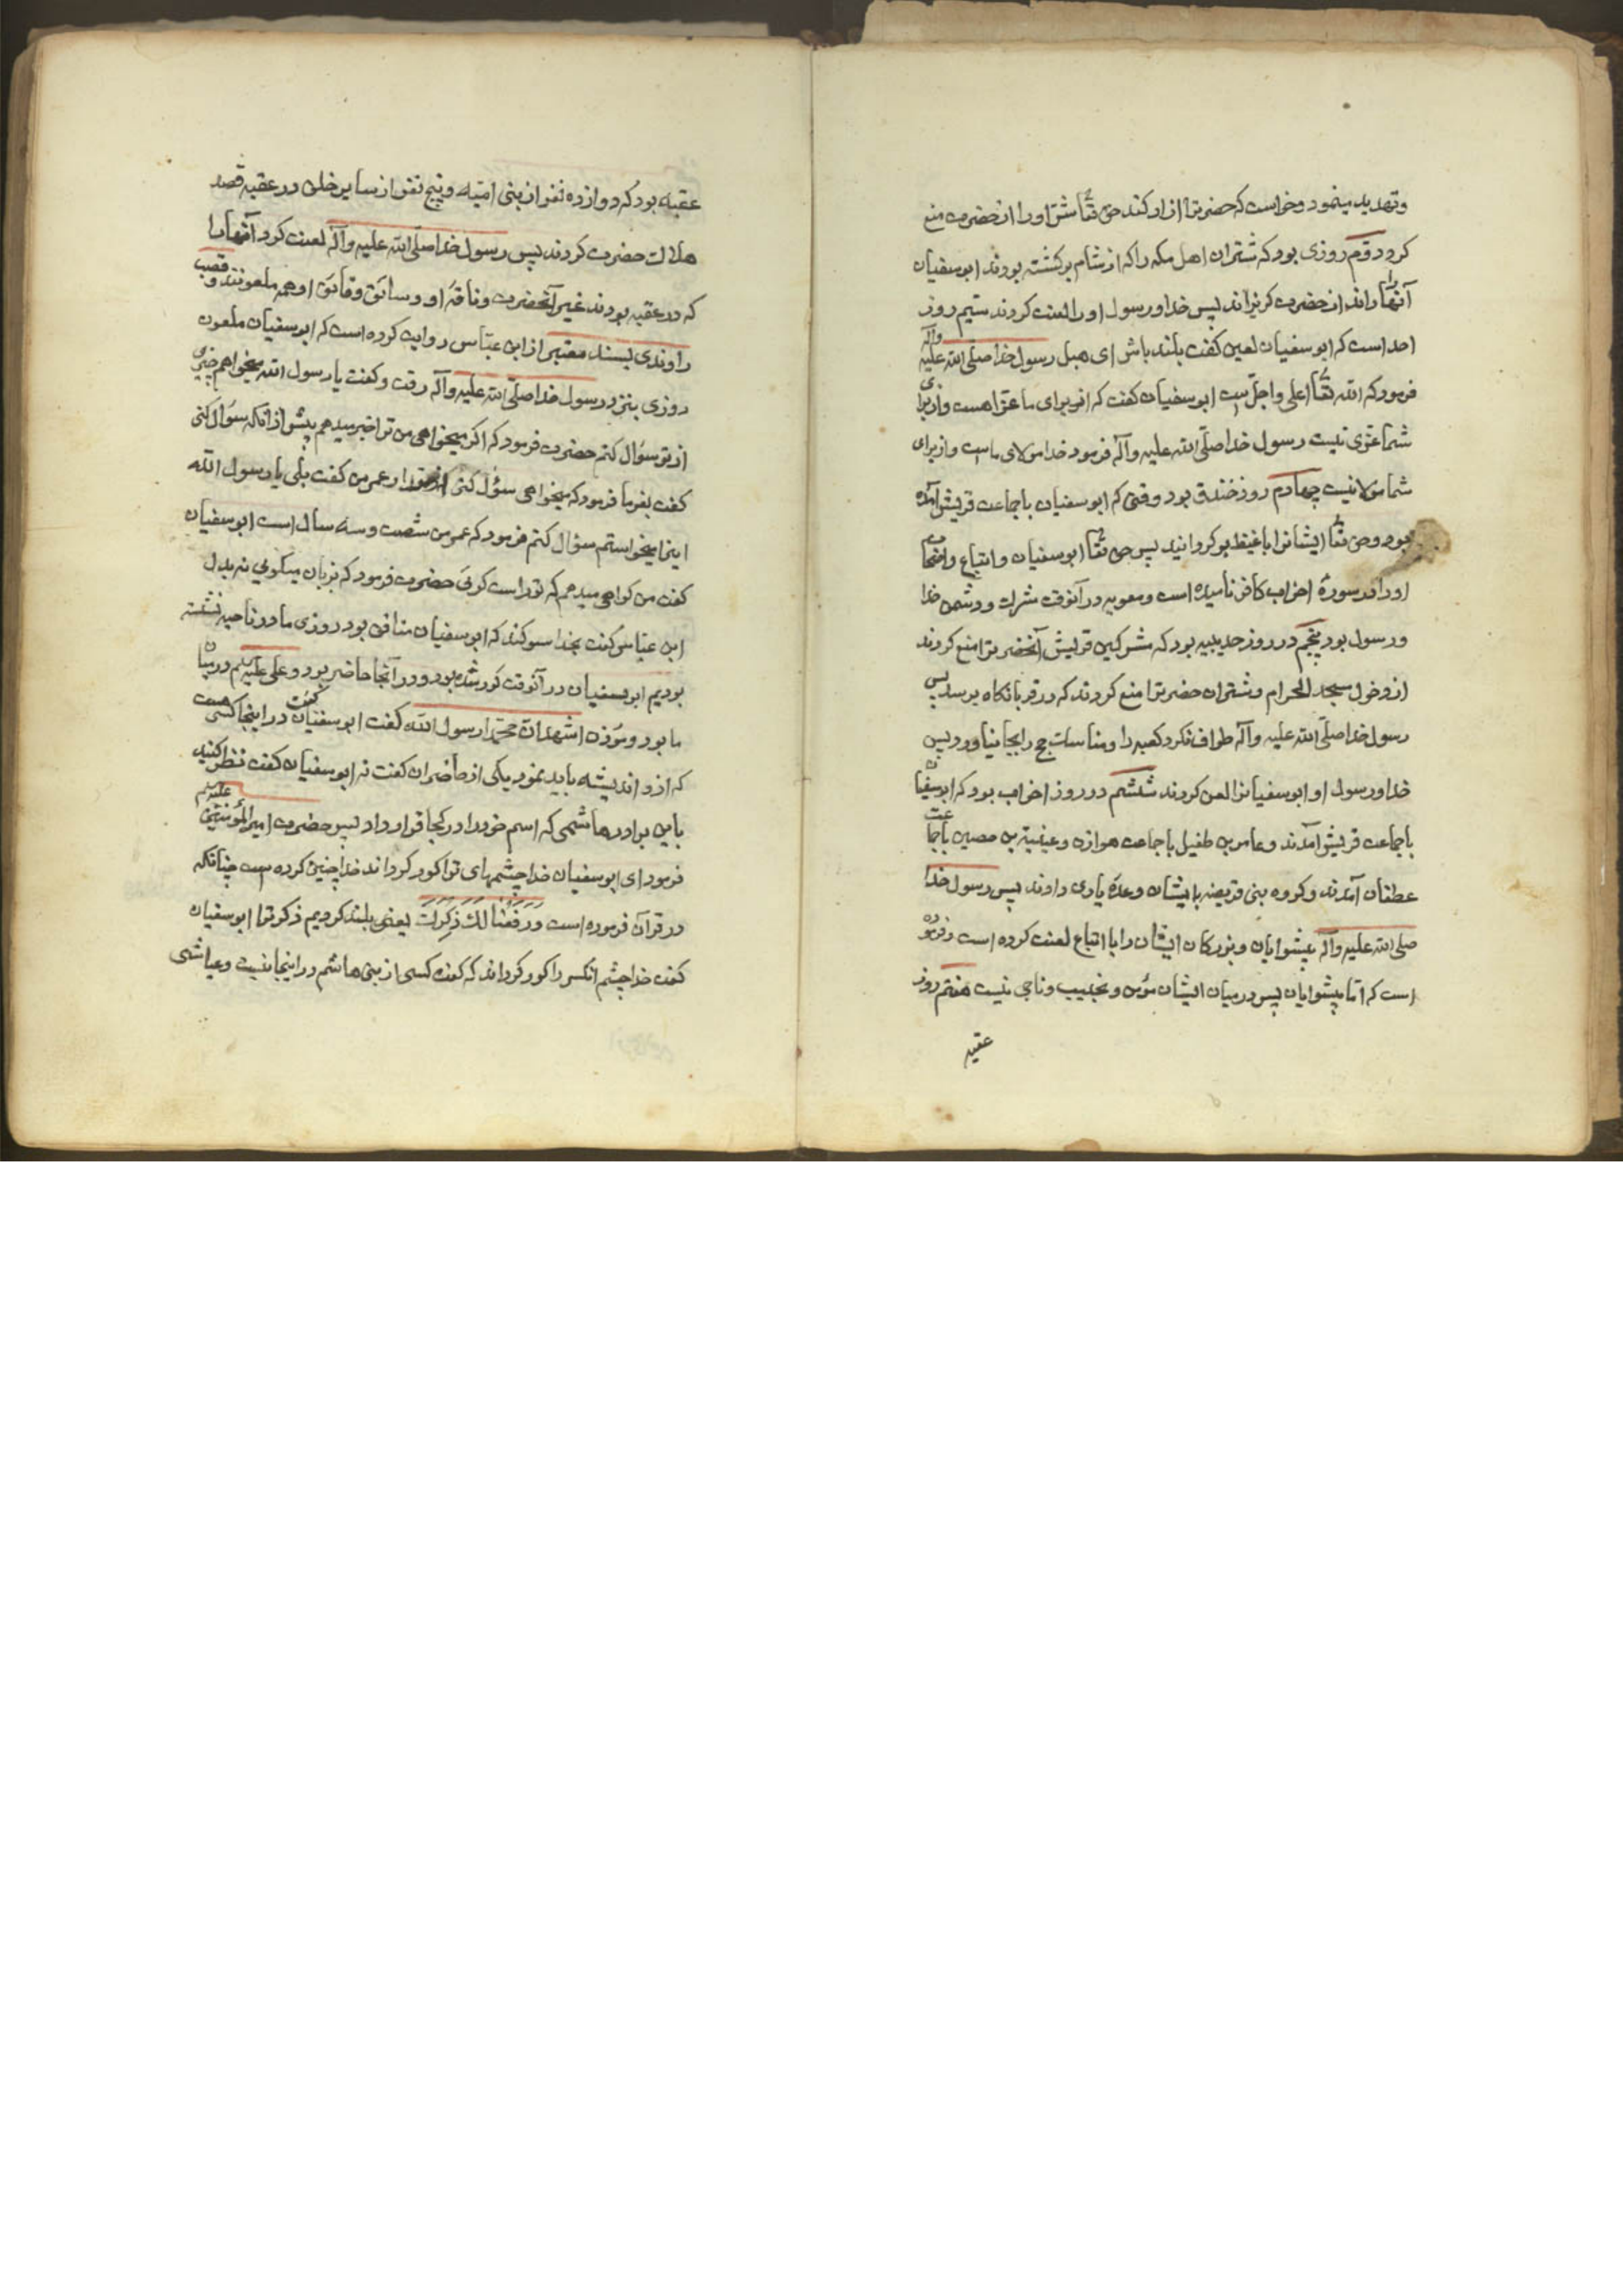 وتهدید مینمود وخواست که حضرترا ازار کند حق تعا شتر اورا از حضرت منع
کرد دوّم روزی بود که شتران اهل مکه را که از شام برکشته بودند ابوسفیان
آنها را راند از حضرت کریزاند پس خدا ورسول اورا لعنت کردند سیّم روز
احد است که ابوسفیان لعین کفت بلند باش ای هبل رسول خدا صلّی الله علیه وآله
فرمود که الله تعا اعلی واجلّ است ابوسفیان کفت که از برای ما عزّا هست واز برای
شما عزّی نیست رسول خدا صلّی الله علیه وآله فرمود خدا مولای ماست واز برای
شما مولا نیست چهارم روز خندق بود وقتی که ابوسفیان باجماعت قریش آمده
بود وحق تعا ایشانرا باغیظ برکردانید پس حق تعا ابوسفیان واتباع واصحاب
اورا در سورهٔ احزاب کافر نامیده است ومعویه در آنوقت مشرک ودشمن خدا
ورسول بود پنجم در روز حدیبیه بود که مشرکین قریش آنحضرترا منع کردند
از دخول مسجد الحرام وشتران حضرترا منع کردند که در قربانکاه برسد پس
رسول خدا صلّی الله علیه وآله طواف نکرد کعبه را ومناسک حج را بجا نیاورد پس
خدا ورسول او ابوسفیانرا لعن کردند ششم در روز احزاب بود که ابوسفیان
باجماعت قریش آمدند وعامر بن طفیل باجماعت هوازن وعیینة بن حصین باجماعت
عطفان آمدند وکروه بنی قریضه بایشان وعدهٔ یاری دادند پس رسول خدا
صلی الله علیه وآله پیشوایان وبزرکان ایشان را با اتباع لعنت کرده است وفرموده
است که امّا پیشوایان پس در میان ایشان مؤمن ونجیب وناجی نیست هفتم روز
عقبه
عقبه بود که دوازده نفر از بنی امیّه وپنج نفر از سایر خلق در عقبه قصد
هلاک حضرت کردند پس رسول خدا صلّی الله علیه وآله لعنت کرد آنها را
که در عقبه بودند غیر آنحضرت وناقهٔ او وسائق وقائق او همه ملعونند وقصب
راوندی بسند معتبر از ابن عبّاس روایت کرده است که ابوسفیان ملعون
روزی بنزد رسول خدا صلّی الله علیه وآله رفت وکفت یا رسول الله میخواهم چیزی
از تو سؤال کنم حضرت فرمود که اکر میخواهی من ترا خبر میدهم پیش از انکه سؤال کنی
کفت بفرما فرمود که میخواهی سؤل کنی از مقدار عمر من کفت بلی یا رسول الله
اینرا میخواستم سؤال کنم فرمود که عمر من شصت وسه سال است ابوسفیان
کفت من کواهی میدهم که تو راست کوئی حضرت فرمود که بزبان میکوئی نه بدل
ابن عبّاس کفت بخدا سوکند که ابوسفیان منافق بود روزی ما در ناحیه نشسته
بودیم ابوسفیان در آنوقت کور شده بود ودر آنجا حاضر بود وعلی علیه السلم در میان
ما بود ومؤذن اشهد انّ محمّدا رسول الله کفت ابوسفیان کفت در اینجا کسی هست
که ازو اندیشه باید نمود یکی از حاضران کفت نه ابوسفیان کفت نظر کنید
باین برادر هاشمی که اسم خودرا در کجا قرار داد پس حضرت امیر المؤمنین علیه السلم
فرمود ای ابوسفیان خدا چشمهای ترا کور کرداند خدا چنین کرده است چنانکه
در قرآن فرموده است ورفعنا لک ذکرک یعنی بلند کردیم ذکر ترا ابوسفیان
کفت خدا چشم انکس را کور کرداند که کفت کسی از بنی هاشم در اینجا نیست وعیاشی